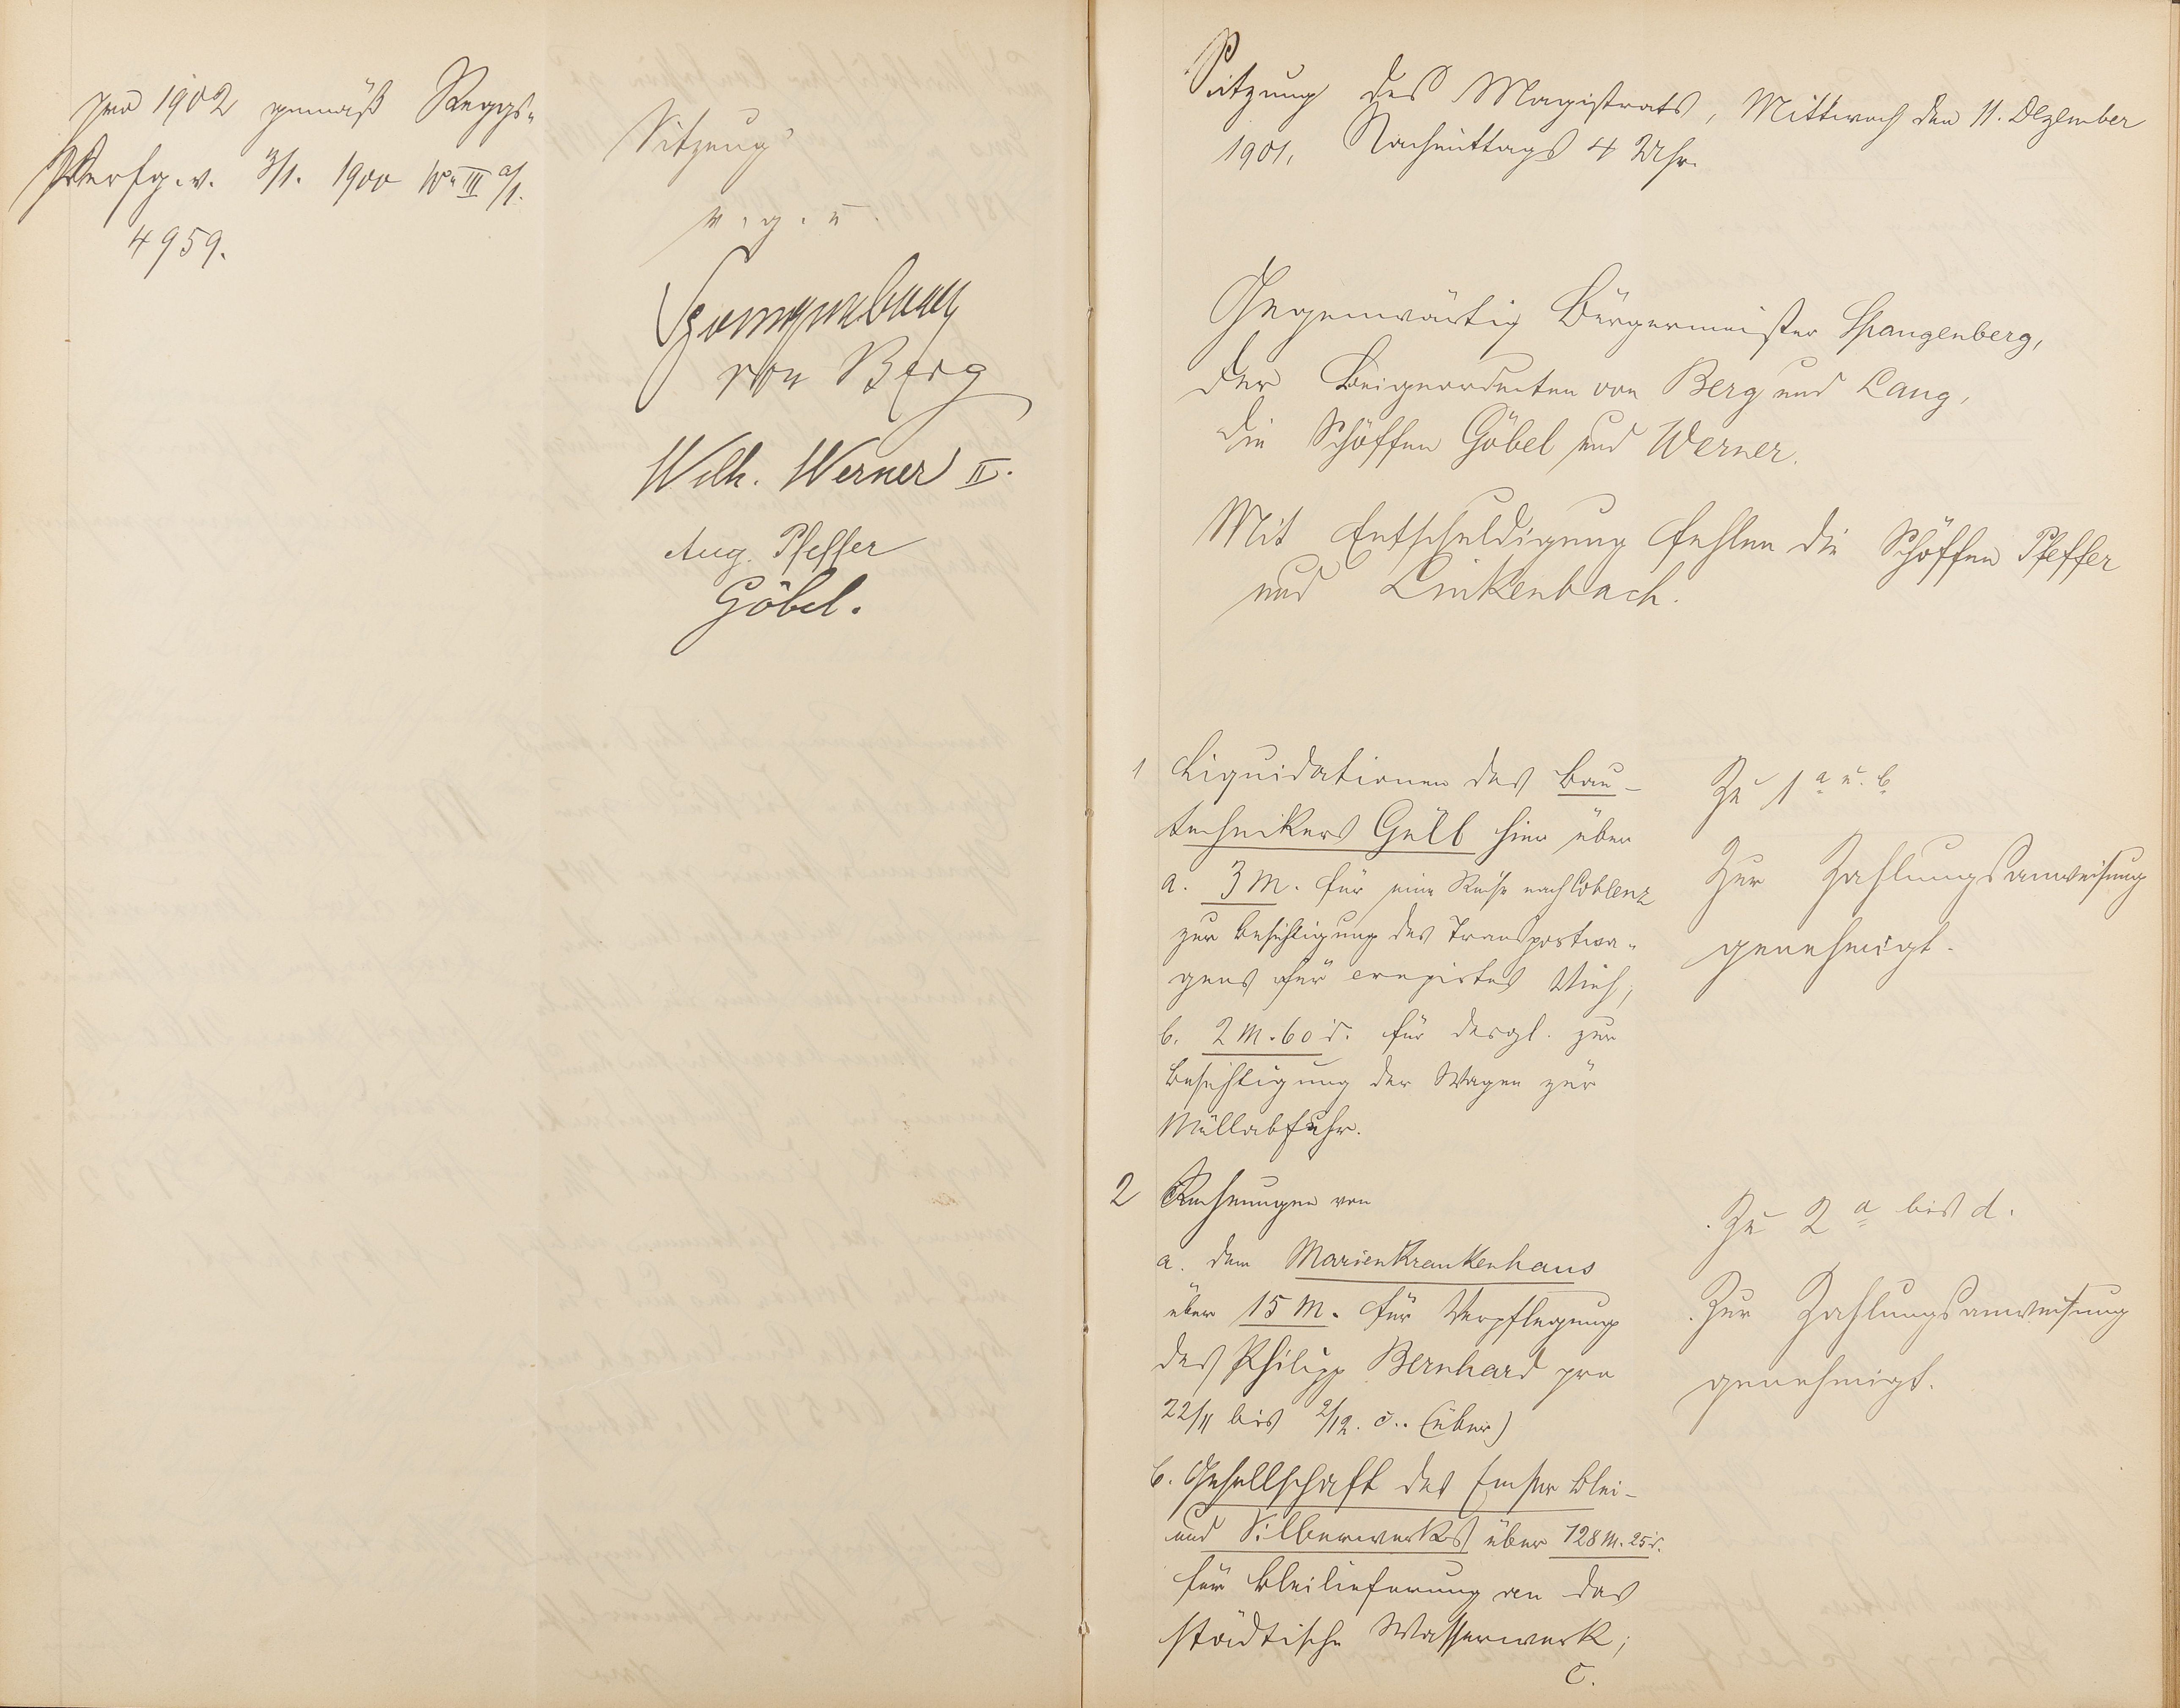 pro 1902 gemäß Reggs-
Verfg. v. 3/1. 1900 No III a/1.
4959.
Sitzung
v. g. u.
Spangenberg
von Berg
Wilh. Werner II.
Aug. Pfeffer
Göbel.
Sitzung des Magistrats, Mittwoch den 11. Dezember
1901, Nachmittags 4 Uhr.
Gegenwärtig Bürgermeister Spangenberg,
der Beigeordneten von Berg und Lang,
die Schöffen Göbel und Werner.
Mit Entschuldigung fehlen die Schöffen Pfeffer
und Linkenbach.
1 Liquidationen des Bau-
technikers Güll hier über
a. 3 M. für eine Reise nach Coblenz
zur Besichtigung des Transportwa-
gens für crepirtes Vieh;
b. 2 M. 60 d. für desgl. zur
Besichtigung der Wagen zur
Müllabfuhr.
Zu 1 a u. b
Zur Zahlungsanweisung
genehmigt.
2 Rechnungen von
a. dem Marienkrankenhaus
über 15 M. für Verpflegung
des Philipp Bernhard pro
22/11 bis 2/12. c. (über)
b. Gesellschaft des Emser Blei-
und Silberwerks über 128 M. 25 d.
für Bleilieferung an das
städtische Wasserwerk;
c.
Zu 2 a bis d.
Zur Zahlungsanweisung
genehmigt.